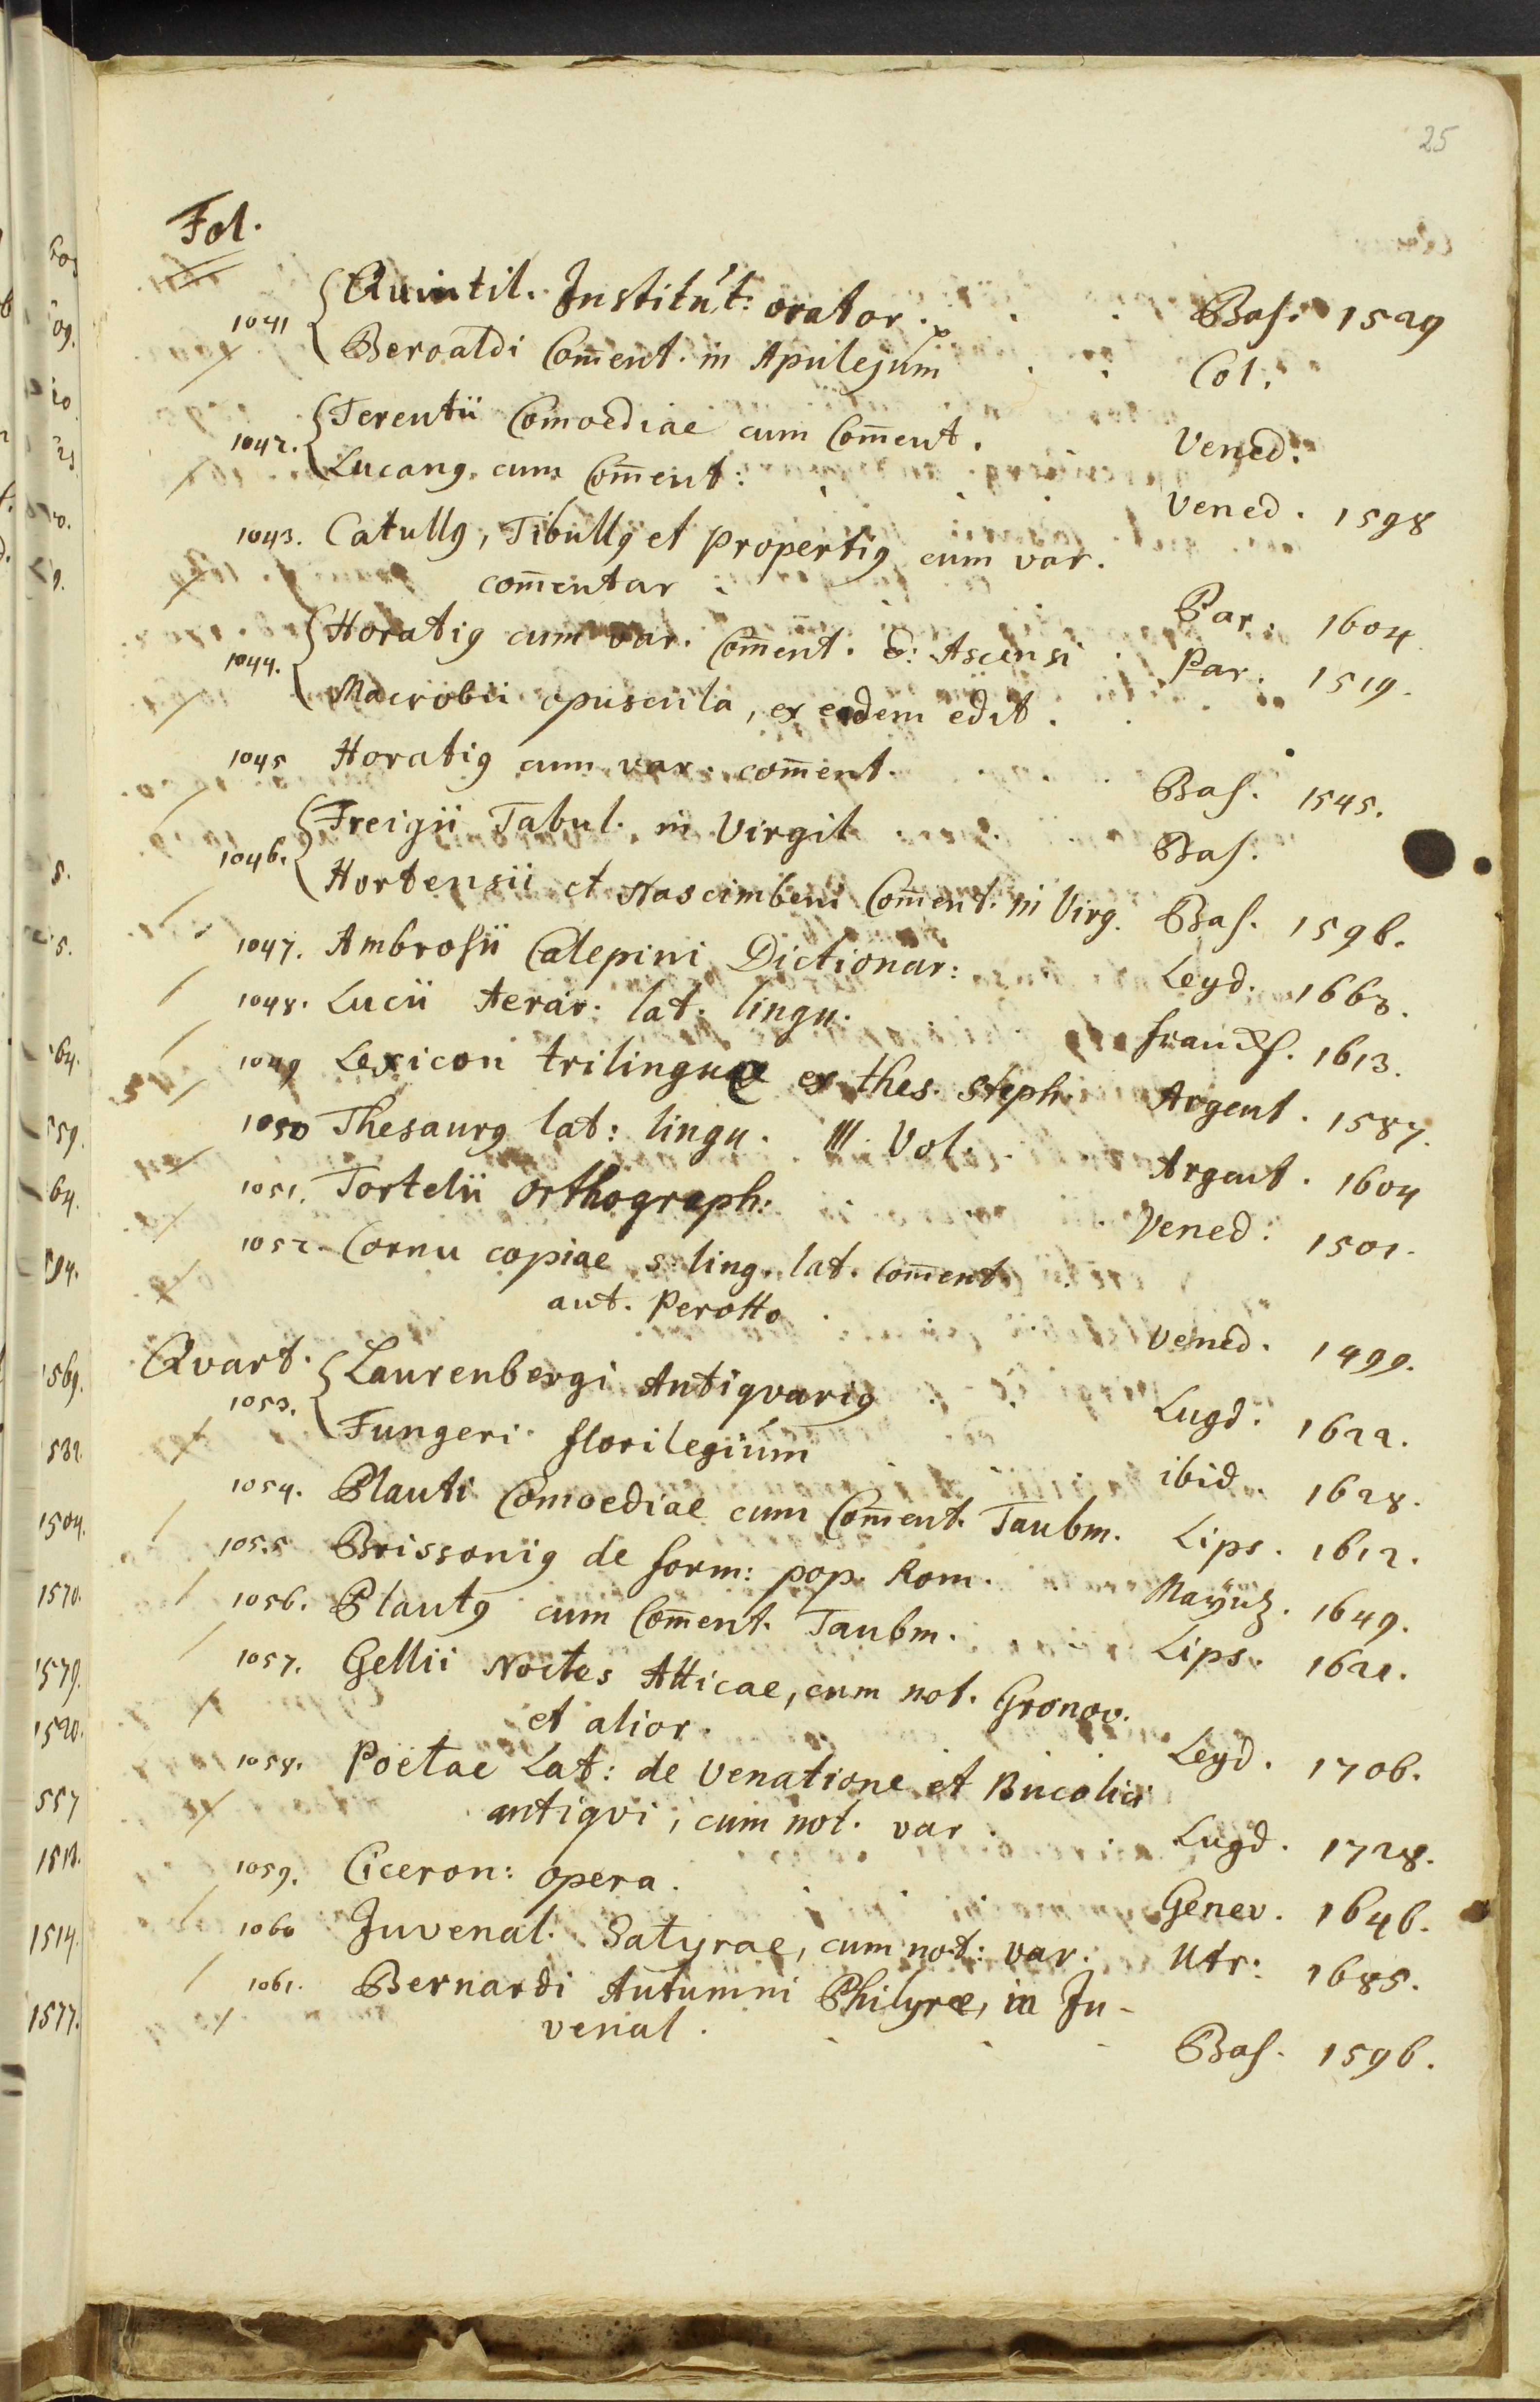 25
Fol.
1041 Quintil. Institut: orator. Bas. 1529
Beroaldi Com̄ent. in Apulejum Col.
1042. Terentii Comoediae cum Com̄ent. Vened.
Lucang cum Com̄ent: Vened. 1598
1043. Catullg, Tibullg et Propertig cum var.
com̄entar: Par. 1604
1044. Horatig cum var. Com̄ent. & Ascensi Par. 1519.
Macrobii opuscula, ex eadem edit.
1045 Horatig cum var. com̄ent. Bas. 1545.
1046. Freigii Tabul. in Virgil Bas.
Hortensii et Nascimbeni Com̄ent. in Virg. Bas. 1596.
1047. Ambrosii Calepini Dictionar: Leyd. 1663.
1048. Lucii Aerar. lat. lingu. Francf. 1613.
1049 Lexicon trilingue ex thes. Steph. Argent. 1587.
1050 Thesaurg lat: lingu. III. Vol. Argent. 1604
1051. Tortelii Orthograph: Vened: 1501.
1052. Cornu copiae s. ling. lat. Com̄ent.
aut. Perotto Vened. 1499.
Qvart.
1053. Laurenbergi Antiqvarig Lugd. 1622.
Fungeri florilegium ibid. 1628.
1054. Plauti Comoediae cum Com̄ent. Taubm. Lips. 1612.
1055 Brissonig de form: pop. Rom. Maÿnz. 1649.
1056. Plautg cum Com̄ent. Taubm. Lips. 1621.
1057. Gellii Noctes Atticae, cum not. Gronov.
et alior. Leyd. 1706.
1058. Poëtae Lat: de Venatione et Bucolici
antiqvi, cum not. var. Lugd. 1728.
1059. Ciceron: opera. Genev. 1646.
1060 Juvenal. Satyrae, cum not: var. Utr: 1685.
1061. Bernardi Autumni Philyrae, in Ju-
venal. Bas. 1596.